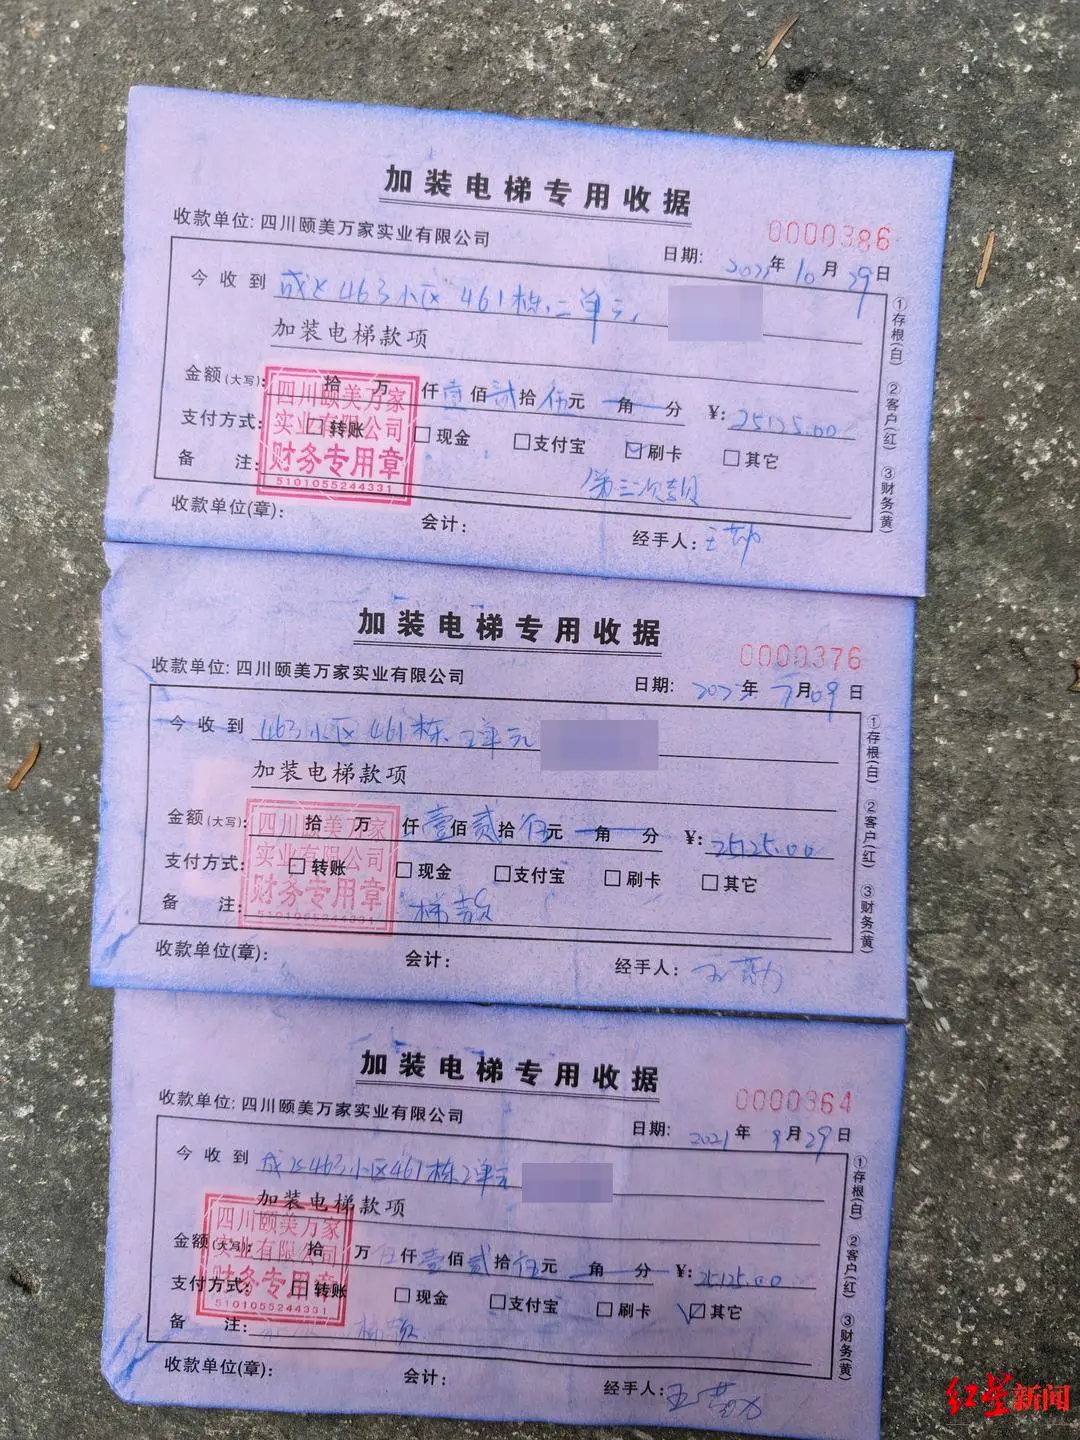 加装电梯专用收据
0000386
收款单位: 四川颐美万家实业有限公司
日期: 年 10 月 29 日
今收到 成飞463小区 461栋二单元
加装电梯款项
金额(大写): 拾 万 仟 壹 佰 贰 拾 伍 元 角 分 ¥: 25125.00
支付方式: 转账 现金 支付宝 刷卡 其它
备 注: 第三次款
收款单位(章): 会计: 经手人:
四川颐美万家
实业有限公司
财务专用章
5101055244331
①存根(白) ②客户(红) ③财务(黄)
加装电梯专用收据
0000376
收款单位: 四川颐美万家实业有限公司
日期: 年 月 09 日
今收到 463小区 461栋 2单元
加装电梯款项
金额(大写): 拾 万 仟 壹 佰 贰 拾 伍 元 角 分 ¥: 25125.00
支付方式: 转账 现金 支付宝 刷卡 其它
备 注: 梯款
收款单位(章): 会计: 经手人:
四川颐美万家
实业有限公司
财务专用章
5101055244331
①存根(白) ②客户(红) ③财务(黄)
加装电梯专用收据
0000364
收款单位: 四川颐美万家实业有限公司
日期: 2021 年 月 29 日
今收到 成飞463小区461栋2单元
加装电梯款项
金额(大写): 拾 万 伍 仟 壹 佰 贰 拾 伍 元 角 分 ¥: 25125.00
支付方式: 转账 现金 支付宝 刷卡 其它
备 注: 梯款
收款单位(章): 会计: 经手人:
四川颐美万家
实业有限公司
财务专用章
5101055244331
①存根(白) ②客户(红) ③财务(黄)
红星新闻